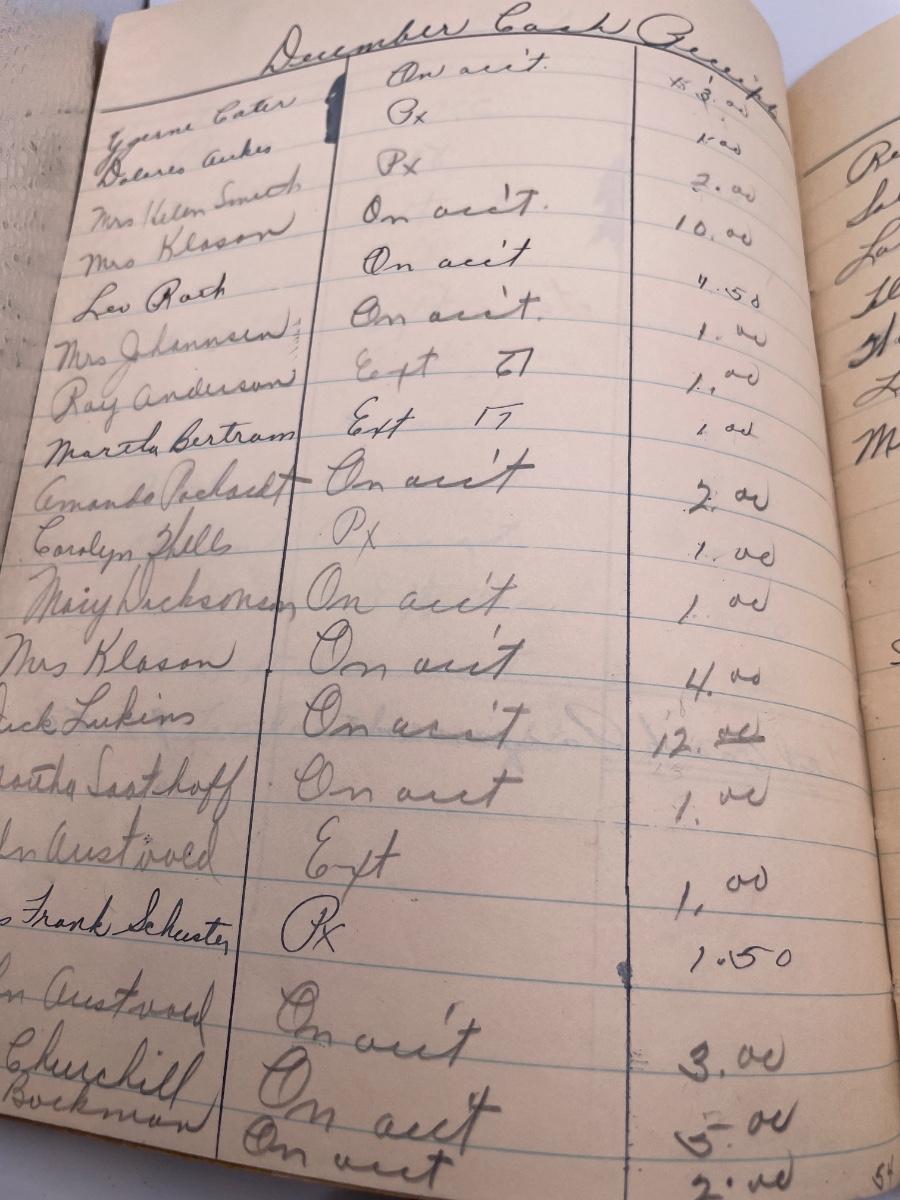 December Cash Receipts
Yverne Cater On acc't. $3.00
Dolores Aukes Px 1.00
Mrs Helen Smith Px 2.00
Mrs Klason On acc't. 10.00
Leo Rath On acc't 4.50
Mrs Johannsen On acc't. 1.00
Ray Anderson Ext 1.00
Martha Bertram Ext 1.00
Amanda On acc't 2.00
Carolyn Px 1.00
Mary Dicksonson On acc't 1.00
Mrs Klason On acc't 4.00
ick Lukins On acc't 12.00
artha Saathoff On acct 1.00
n Austvold Ext 1.00
s Frank Schuster Px 1.50
n Austvold On acc't 3.00
Churchill On acc't 5.00
Bockman On acct 2.00